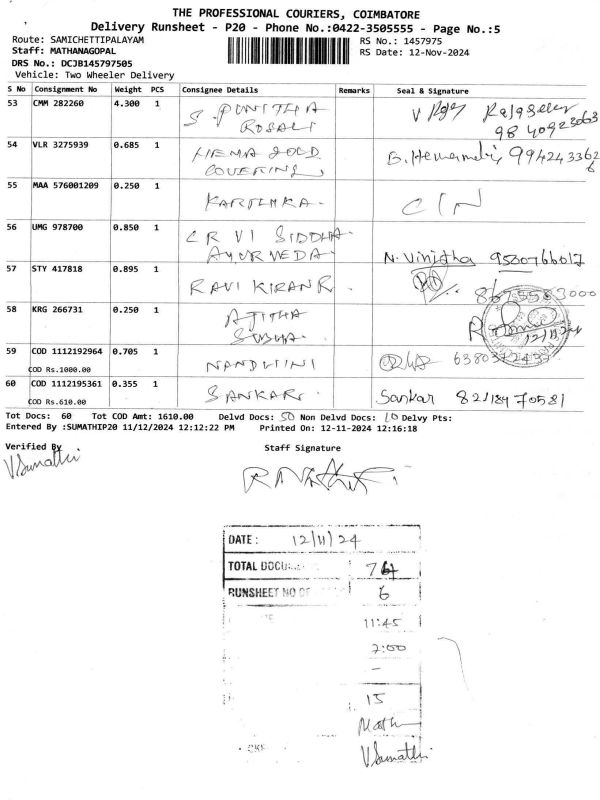 THE PROFESSIONAL COURIERS, COIMBATORE
Delivery Runsheet - P20 - Phone No.:0422-3505555 - Page No.:5
Route: SAMICHETTIPALAYAM
RS No.: 1457975
Staff: MATHANAGOPAL
RS Date: 12-Nov-2024
DRS No.: DCJB145797505
Vehicle: Two Wheeler Delivery
S No Consignment No Weight PCS Consignee Details Remarks Seal & Signature
53 CMM 282260 4.300 1 S. PUNITHA V Rajasekar
ROSALI 9840923063
54 VLR 3275939 0.685 1 HEMA GOLD B. Hemamalini
COVERING
55 MAA 576001209 0.250 1 KARTHIKA. CIN
56 UMG 978700 0.850 1 CR VI SIDDHA
AYURVEDA. N. Vinistha 9500766017
57 STY 417818 0.895 1 RAVI KIRAN R.
58 KRG 266731 0.250 1 AJITHA
SUBHA. 12/11/24
59 COD 1112192964 0.705 1 NANDHINI
COD Rs.1000.00
60 COD 1112195361 0.355 1 SANKAR. Sankar
COD Rs.610.00
Tot Docs: 60 Tot COD Amt: 1610.00 Delvd Docs: 50 Non Delvd Docs: 10 Delvy Pts:
Entered By :SUMATHIP20 11/12/2024 12:12:22 PM Printed On: 12-11-2024 12:16:18
Verified By Staff Signature
V Sumathi
DATE : 12/11/24
TOTAL DOCU
RUNSHEET NO OF 6
11:45
2:00
-
15
Math
V Sumathi